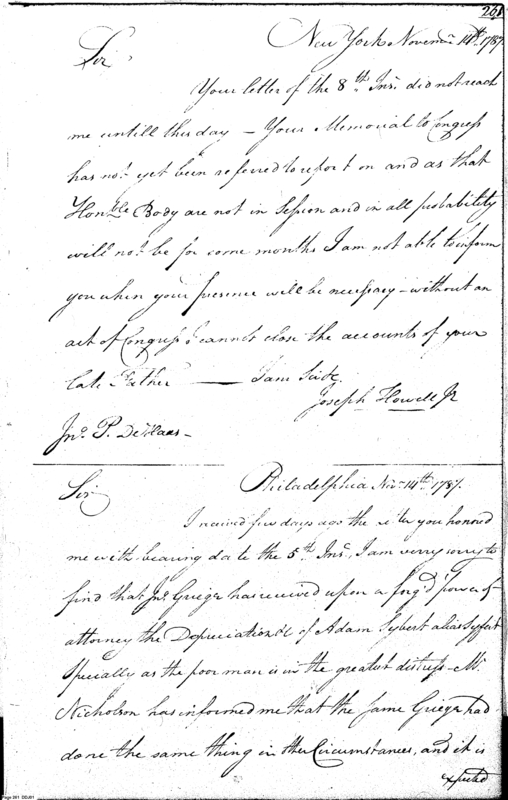 261
New York Novemr. 14th. 1787.
Sir,
Your letter of the 8th. Inst. did not reach
me untill this day – Your Memorial to Congress
has not yet been referred to report on and as that
Honble Body are not in Session and in all probability
will not be for some months I am not able to inform
you when your presence will be necessary – without an
act of Congress I cannot close the accounts of your
late Father —— I am Sir &c.
Joseph Howell Jr
Jno. P. DeHaas –
Philadelphia Nov. 14th. 1787.
Sir
I received few days ago the letter you honored
me with bearing date the 5th Inst., I am verry sorry to
find that Jno. Grieger has received upon a forg'd power of
attorney the Depreciation of Adam Sybert alias Syffert
Specially as the poor man is in the greatest distress – Mr.
Nicholson has informed me that the same Grieger had
done the same thing in other Circumstances, and it is
expected